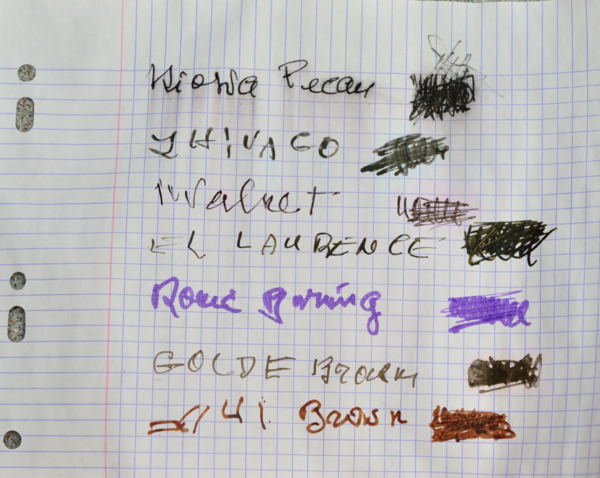 Kiowa Pecan
ZHIVAGO
Walnut
EL LAURENCE
Rome Burning
GOLDE Brown
41 Brown